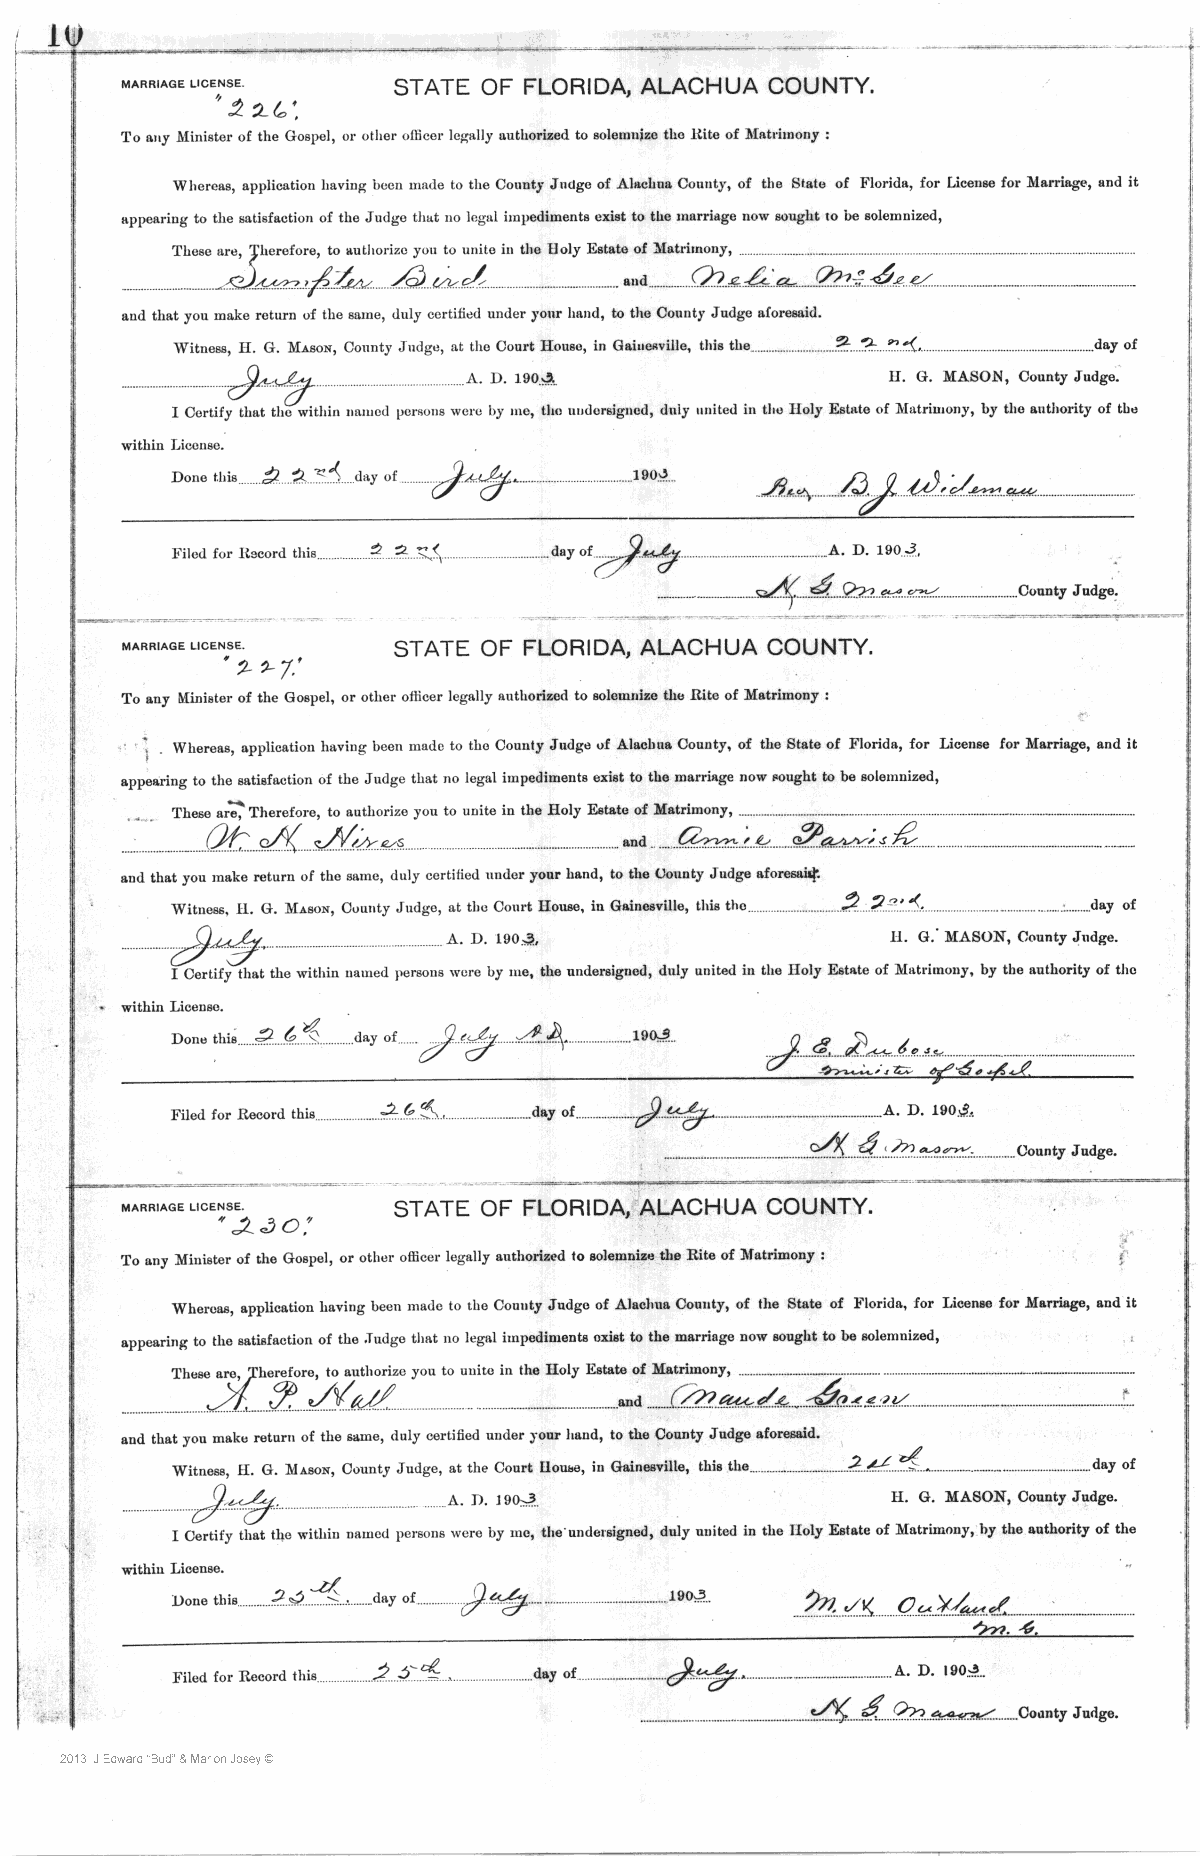 10
MARRIAGE LICENSE. STATE OF FLORIDA, ALACHUA COUNTY.
"226".
To any Minister of the Gospel, or other officer legally authorized to solemnize the Rite of Matrimony :
Whereas, application having been made to the County Judge of Alachua County, of the State of Florida, for License for Marriage, and it
appearing to the satisfaction of the Judge that no legal impediments exist to the marriage now sought to be solemnized,
These are, Therefore, to authorize you to unite in the Holy Estate of Matrimony,
Sumpter Bird and Nelia McGee
and that you make return of the same, duly certified under your hand, to the County Judge aforesaid.
Witness, H. G. MASON, County Judge, at the Court House, in Gainesville, this the 22nd. day of
July A. D. 1903. H. G. MASON, County Judge.
I Certify that the within named persons were by me, the undersigned, duly united in the Holy Estate of Matrimony, by the authority of the
within License.
Done this 22nd day of July. 1903 Rev B. J. Wideman
Filed for Record this 22nd day of July A. D. 1903.
H. G. Mason County Judge.
MARRIAGE LICENSE. STATE OF FLORIDA, ALACHUA COUNTY.
"227."
To any Minister of the Gospel, or other officer legally authorized to solemnize the Rite of Matrimony :
Whereas, application having been made to the County Judge of Alachua County, of the State of Florida, for License for Marriage, and it
appearing to the satisfaction of the Judge that no legal impediments exist to the marriage now sought to be solemnized,
These are, Therefore, to authorize you to unite in the Holy Estate of Matrimony,
W. H. Hires and Annie Parrish
and that you make return of the same, duly certified under your hand, to the County Judge aforesaid.
Witness, H. G. MASON, County Judge, at the Court House, in Gainesville, this the 22nd. day of
July. A. D. 1903. H. G. MASON, County Judge.
I Certify that the within named persons were by me, the undersigned, duly united in the Holy Estate of Matrimony, by the authority of the
within License.
Done this 26th day of July A.D. 1903 J. E. Dubose
Minister of Gospel.
Filed for Record this 26th. day of July. A. D. 1903.
H. G. Mason. County Judge.
MARRIAGE LICENSE. STATE OF FLORIDA, ALACHUA COUNTY.
"230."
To any Minister of the Gospel, or other officer legally authorized to solemnize the Rite of Matrimony :
Whereas, application having been made to the County Judge of Alachua County, of the State of Florida, for License for Marriage, and it
appearing to the satisfaction of the Judge that no legal impediments exist to the marriage now sought to be solemnized,
These are, Therefore, to authorize you to unite in the Holy Estate of Matrimony,
A. P. Hall and Maude Green
and that you make return of the same, duly certified under your hand, to the County Judge aforesaid.
Witness, H. G. MASON, County Judge, at the Court House, in Gainesville, this the 24th. day of
July. A. D. 1903 H. G. MASON, County Judge.
I Certify that the within named persons were by me, the undersigned, duly united in the Holy Estate of Matrimony, by the authority of the
within License.
Done this 25th. day of July 1903 M. H. Outland.
M. G.
Filed for Record this 25th. day of July. A. D. 1903
H. G. Mason County Judge.
2013 J Edward "Bud" & Marion Josey ©